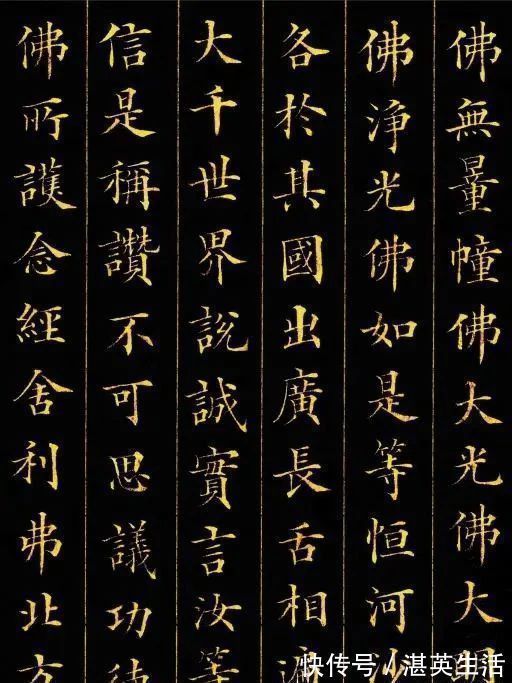 佛無量幢佛大光佛大明
佛浄光佛如是等恒河沙
各於其國出廣長舌相遍
大千世界說誠實言汝等
信是稱讚不可思議功德
佛所護念經舍利弗北方
快传号/湛英生活